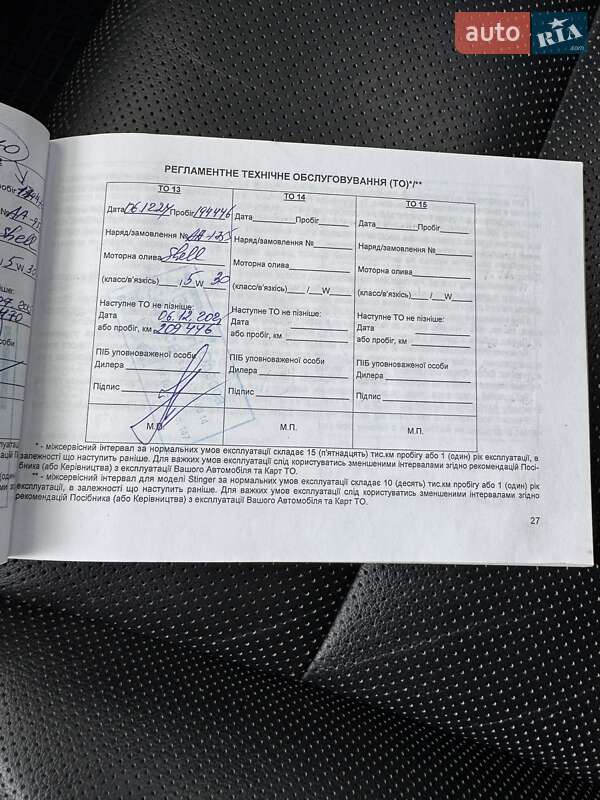 auto RIA.com
РЕГЛАМЕНТНЕ ТЕХНІЧНЕ ОБСЛУГОВУВАННЯ (ТО)*/**
ТО 13
Дата 061224 Пробіг 194446
Наряд/замовлення № АА-135
Моторна олива Shell
(класс/в'язкість) /5 W 30
Наступне ТО не пізніше:
Дата 06.12.202
або пробіг, км 209 446
ПІБ уповноваженої особи
Дилера
Підпис
М.П.
ТО 14
Дата Пробіг
Наряд/замовлення №
Моторна олива
(класс/в'язкість) / W
Наступне ТО не пізніше:
Дата
або пробіг, км
ПІБ уповноваженої особи
Дилера
Підпис
М.П.
ТО 15
Дата Пробіг
Наряд/замовлення №
Моторна олива
(класс/в'язкість) / W
Наступне ТО не пізніше:
Дата
або пробіг, км
ПІБ уповноваженої особи
Дилера
Підпис
М.П.
* - міжсервісний інтервал за нормальних умов експлуатації складає 15 (п'ятнадцять) тис.км пробігу або 1 (один) рік експлуатації, в
залежності що наступить раніше. Для важких умов експлуатації слід користуватись зменшеними інтервалами згідно рекомендацій Посі-
бника (або Керівництва) з експлуатації Вашого Автомобіля та Карт ТО.
** - міжсервісний інтервал для моделі Stinger за нормальних умов експлуатації складає 10 (десять) тис.км пробігу або 1 (один) рік
експлуатації, в залежності що наступить раніше. Для важких умов експлуатації слід користуватись зменшеними інтервалами згідно
рекомендацій Посібника (або Керівництва) з експлуатації Вашого Автомобіля та Карт ТО.
27